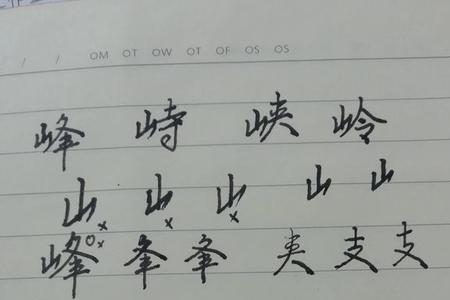 / / OM OT OW OT OF OS OS
峰 峙 峡 岭
山 山 山 山 山
× × ×
峰 夆 夆 夹 支 支